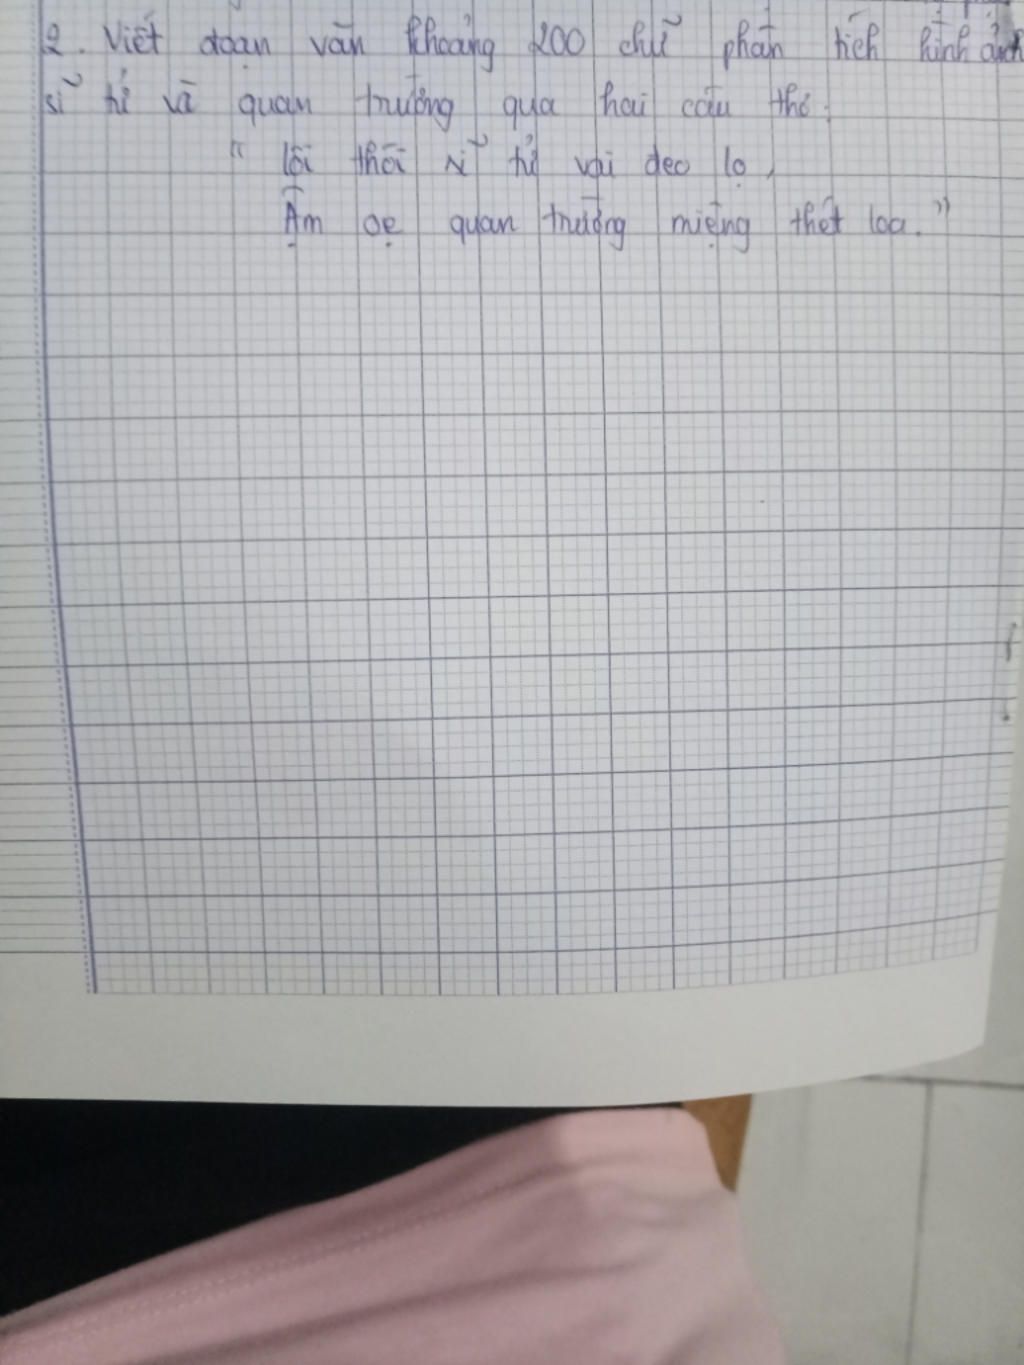 2. Viết đoạn văn khoảng 200 chữ phân tích hình ảnh
sĩ tử và quan trường qua hai câu thơ:
"Lôi thôi sĩ tử vai đeo lọ,
Ậm oẹ quan trường miệng thét loa."